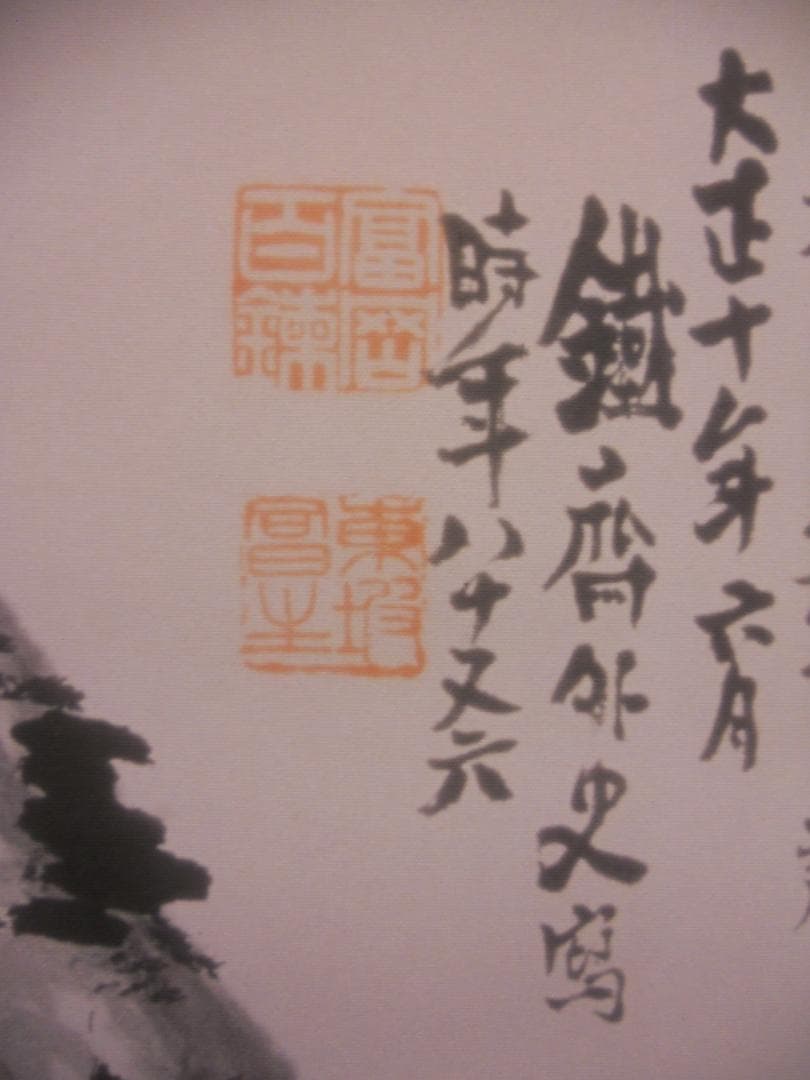 大正十年六月
鐵齋外史寫
時年八十又六
富岡百錬
東坡同日生